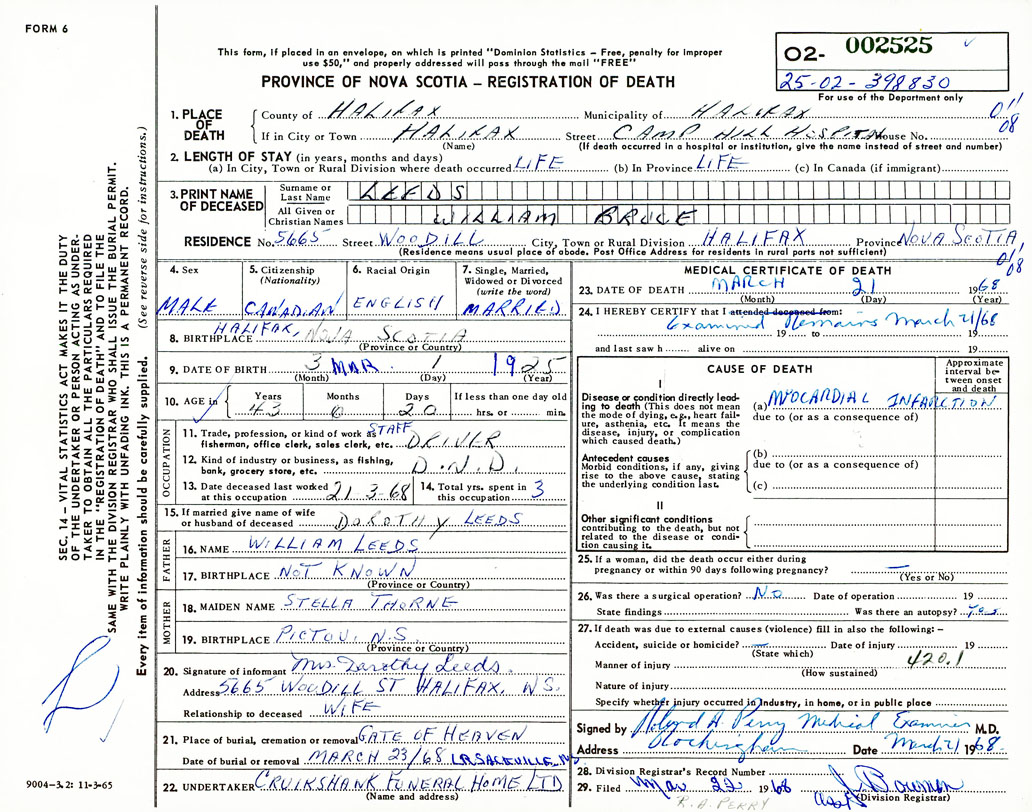 FORM 6
This form, if placed in an envelope, on which is printed "Dominion Statistics – Free, penalty for improper
use $50," and properly addressed will pass through the mail "FREE"
PROVINCE OF NOVA SCOTIA – REGISTRATION OF DEATH
02- 002525
25-02-398830
For use of the Department only
011
08
1. PLACE OF DEATH
County of HALIFAX Municipality of HALIFAX
If in City or Town HALIFAX Street CAMP HILL HOSPITAL House No.
(Name) (If death occurred in a hospital or institution, give the name instead of street and number)
2. LENGTH OF STAY (in years, months and days)
(a) In City, Town or Rural Division where death occurred LIFE (b) In Province LIFE (c) In Canada (if immigrant)
3. PRINT NAME OF DECEASED
Surname or Last Name LEEDS
All Given or Christian Names WILLIAM BRUCE
RESIDENCE No. 5665 Street WOODILL City, Town or Rural Division HALIFAX Province NOVA SCOTIA
(Residence means usual place of abode. Post Office Address for residents in rural parts not sufficient)
01/
08
4. Sex MALE
5. Citizenship (Nationality) CANADIAN
6. Racial Origin ENGLISH
7. Single, Married, Widowed or Divorced (write the word) MARRIED
8. BIRTHPLACE HALIFAX, NOVA SCOTIA
(Province or Country)
9. DATE OF BIRTH 3 MAR 1 1925
(Month) (Day) (Year)
10. AGE in Years Months Days If less than one day old
43 0 20 hrs. or min.
OCCUPATION
11. Trade, profession, or kind of work as fisherman, office clerk, sales clerk, etc. STAFF DRIVER
12. Kind of industry or business, as fishing, bank, grocery store, etc. D.N.D.
13. Date deceased last worked at this occupation 21-3-68
14. Total yrs. spent in this occupation 3
15. If married give name of wife or husband of deceased DOROTHY LEEDS
FATHER
16. NAME WILLIAM LEEDS
17. BIRTHPLACE NOT KNOWN
(Province or Country)
MOTHER
18. MAIDEN NAME STELLA THORNE
19. BIRTHPLACE PICTOU, N.S.
(Province or Country)
20. Signature of informant Mrs. Dorothy Leeds
Address 5665 WOODILL ST HALIFAX, N.S.
Relationship to deceased WIFE
21. Place of burial, cremation or removal GATE OF HEAVEN
Date of burial or removal MARCH 23/68 LR. SACKVILLE, NS
22. UNDERTAKER CRUIKSHANK FUNERAL HOME LTD
(Name and address)
MEDICAL CERTIFICATE OF DEATH
23. DATE OF DEATH MARCH 21 1968
(Month) (Day) (Year)
24. I HEREBY CERTIFY that I attended deceased from:
Examined Remains March 21/68
19 to 19
and last saw h alive on 19
CAUSE OF DEATH
Approximate interval between onset and death
I
Disease or condition directly leading to death (This does not mean the mode of dying, e.g., heart failure, asthenia, etc. It means the disease, injury, or complication which caused death.)
(a) MYOCARDIAL INFARCTION
due to (or as a consequence of)
Antecedent causes
Morbid conditions, if any, giving rise to the above cause, stating the underlying condition last.
(b)
due to (or as a consequence of)
(c)
II
Other significant conditions contributing to the death, but not related to the disease or condition causing it.
25. If a woman, did the death occur either during
pregnancy or within 90 days following pregnancy? —
(Yes or No)
26. Was there a surgical operation? No Date of operation 19
State findings Was there an autopsy? Yes
27. If death was due to external causes (violence) fill in also the following: –
Accident, suicide or homicide? — Date of injury 19
(State which)
Manner of injury 420.1
(How sustained)
Nature of injury
Specify whether injury occurred in Industry, in home, or in public place
Signed by A. Perry Medical Examiner M.D.
Address Rockingham Date March 21 1968
28. Division Registrar's Record Number
29. Filed Mar 22 1968
Division Registrar
R.A. PERRY
SEC. 14 – VITAL STATISTICS ACT MAKES IT THE DUTY
OF THE UNDERTAKER OR PERSON ACTING AS UNDER-
TAKER TO OBTAIN ALL THE PARTICULARS REQUIRED
IN THE "REGISTRATION OF DEATH" AND TO FILE THE
SAME WITH THE DIVISION REGISTRAR WHO SHALL ISSUE THE BURIAL PERMIT.
WRITE PLAINLY WITH UNFADING INK. THIS IS A PERMANENT RECORD.
Every item of information should be carefully supplied. (See reverse side for instructions.)
9004-3.2: 11-3-65